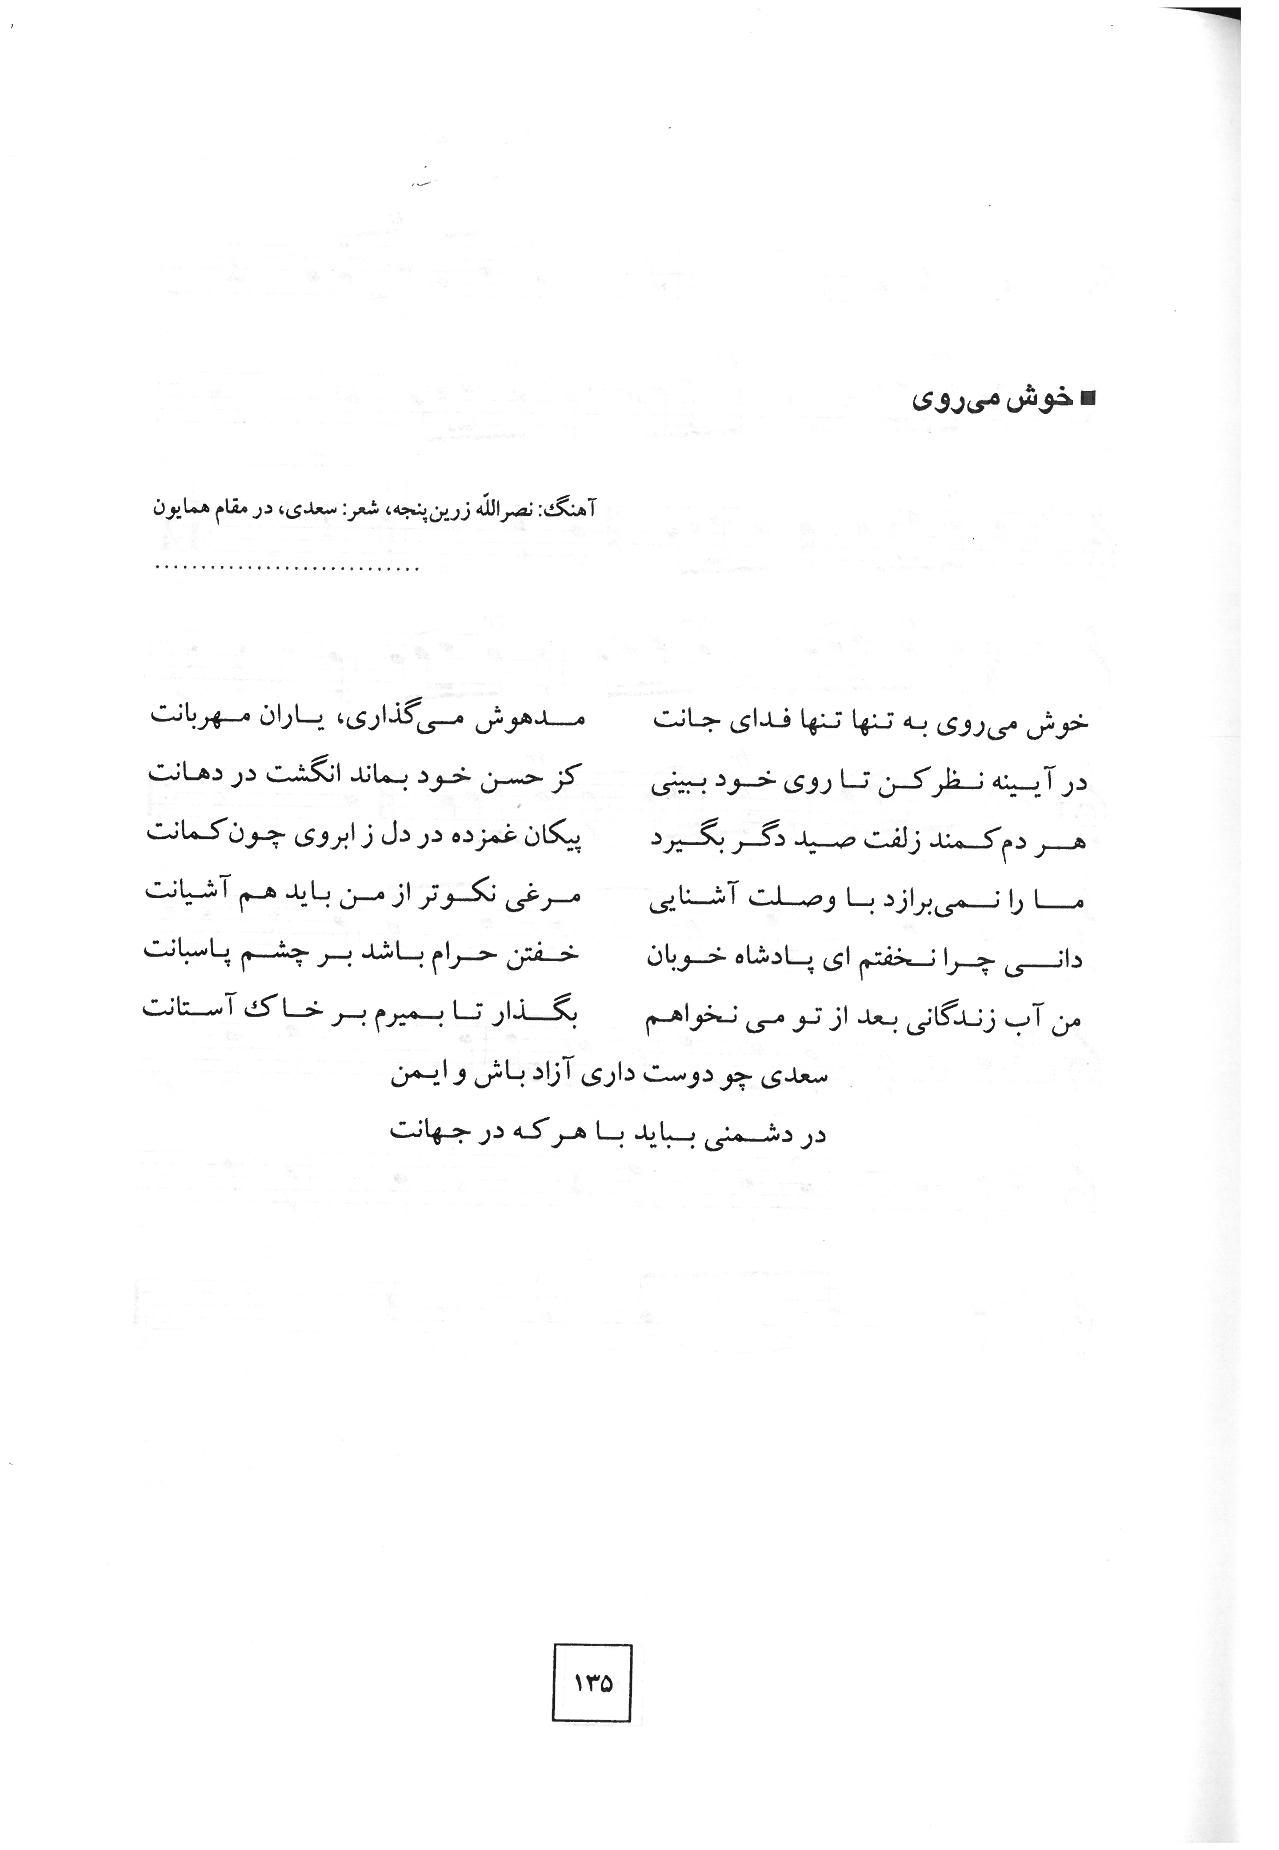 ■ خوش می‌روی
آهنگ: نصرالله زرین‌پنجه، شعر: سعدی، در مقام همایون
............................
خوش می‌روی به تنها تنها فدای جانت مدهوش می‌گذاری، یاران مهربانت
در آیینه نظر کن تا روی خود ببینی کز حسن خود بماند انگشت در دهانت
هر دم کمند زلفت صید دگر بگیرد پیکان غمزده در دل ز ابروی چون کمانت
ما را نمی‌برازد با وصلت آشنایی مرغی نکوتر از من باید هم آشیانت
دانی چرا نخفتم ای پادشاه خوبان خفتن حرام باشد بر چشم پاسبانت
من آب زندگانی بعد از تو می نخواهم بگذار تا بمیرم بر خاک آستانت
سعدی چو دوست داری آزاد باش و ایمن
در دشمنی بباید با هر که در جهانت
۱۳۵